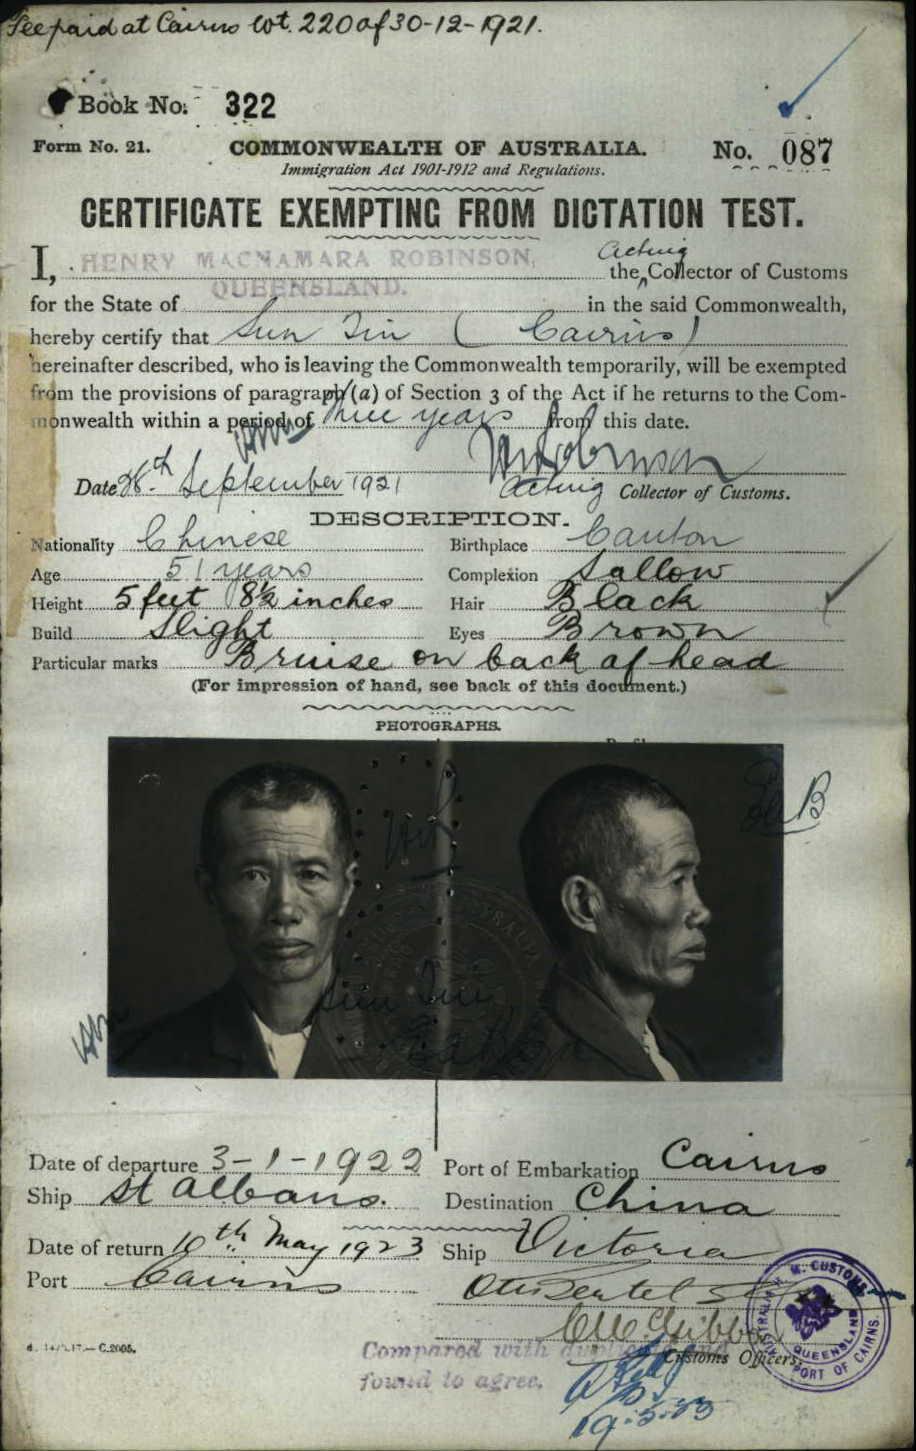 Fee paid at Cairns Wt. 220 of 30-12-1921.
Book No. 322
Form No. 21. COMMONWEALTH OF AUSTRALIA. No. 087
Immigration Act 1901-1912 and Regulations.
CERTIFICATE EXEMPTING FROM DICTATION TEST.
I, HENRY MACNAMARA ROBINSON, the Acting Collector of Customs
for the State of QUEENSLAND. in the said Commonwealth,
hereby certify that Sun Tin (Cairns)
hereinafter described, who is leaving the Commonwealth temporarily, will be exempted
from the provisions of paragraph (a) of Section 3 of the Act if he returns to the Com-
monwealth within a period of three years from this date.
Date 28th. September 1921 Acting Collector of Customs.
DESCRIPTION.
Nationality Chinese Birthplace Canton
Age 51 years Complexion Sallow
Height 5 feet 8½ inches Hair Black
Build Slight Eyes Brown
Particular marks Bruise on back of head
(For impression of hand, see back of this document.)
PHOTOGRAPHS.
Sun Tin
Date of departure 3-1-1922 Port of Embarkation Cairns
Ship St Albans. Destination China
Date of return 10th May 1923 Ship Victoria
Port Cairns
Customs Officers.
C.2005.
Compared with duplicate and
found to agree.
19.5.23
H. M. CUSTOMS
AUSTRALIA
QUEENSLAND
PORT OF CAIRNS.